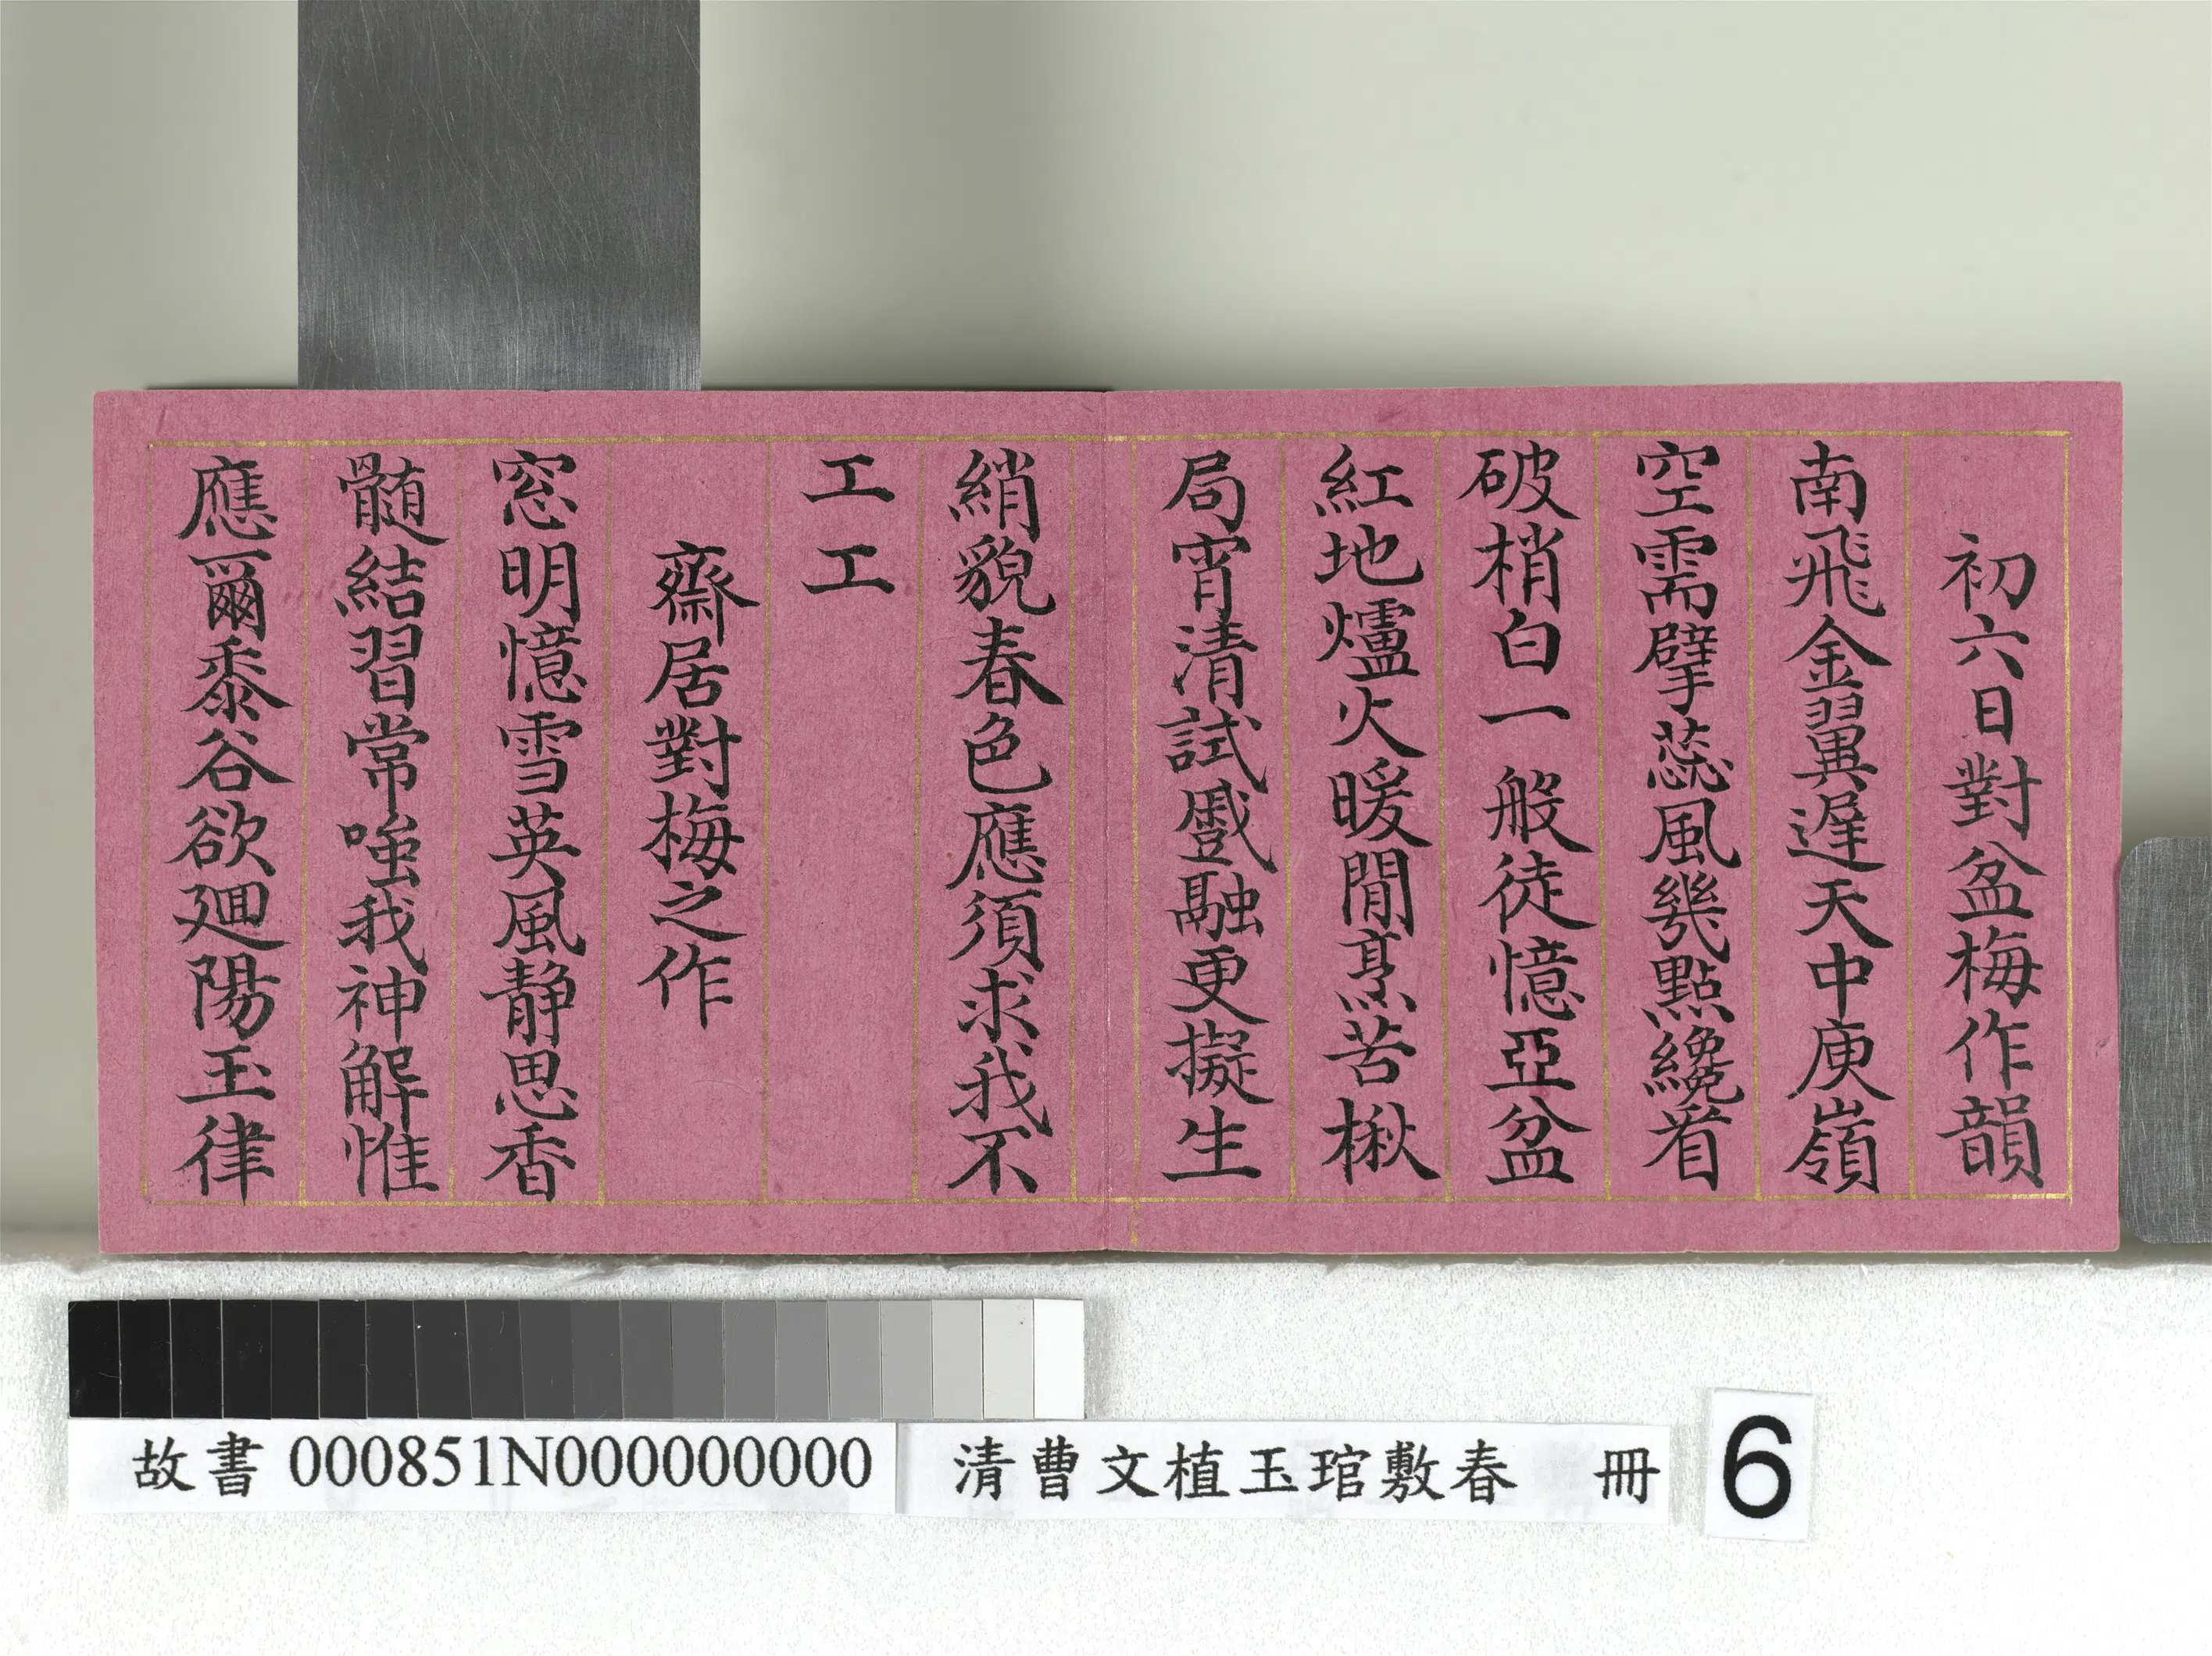 初六日對盆梅作韻
南飛金翼遲天中庾嶺
空需擘蕊風幾點纔看
破梢白一般徒憶亞盆
紅地爐火暖閒烹苦楸
局宵清試戲融更擬生
綃貌春色應須求我不
工工
齋居對梅之作
窓明憶雪英風静思香
髓結習常嗤我神解惟
應爾黍谷欲廻陽玉律
故書 000851N000000000
清曹文植玉琯敷春 冊
6